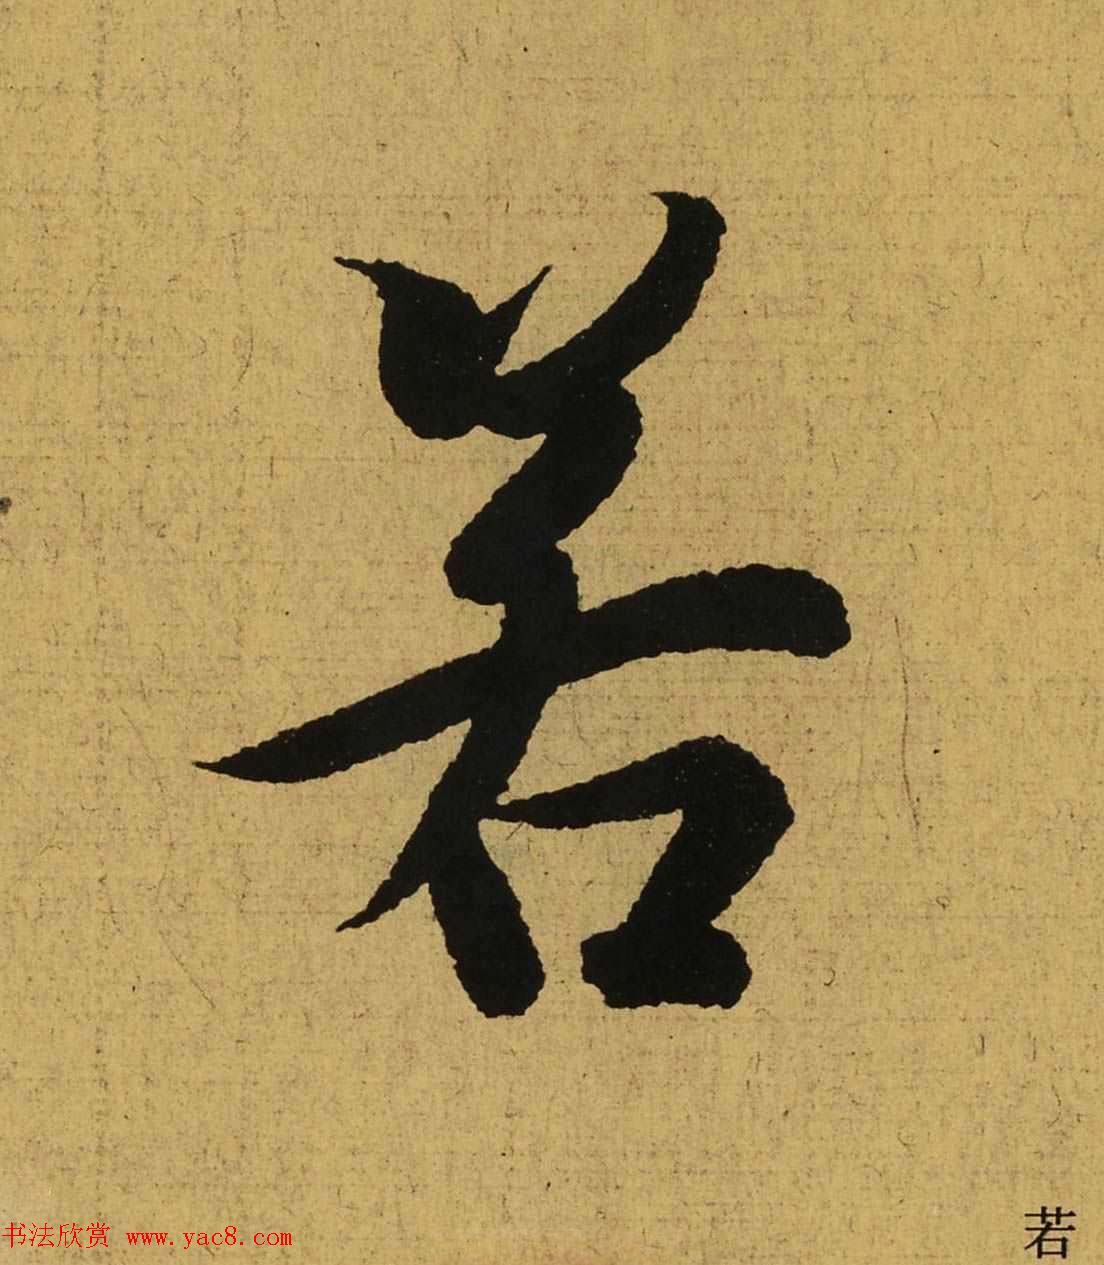 若
书法欣赏 www.yac8.com
若